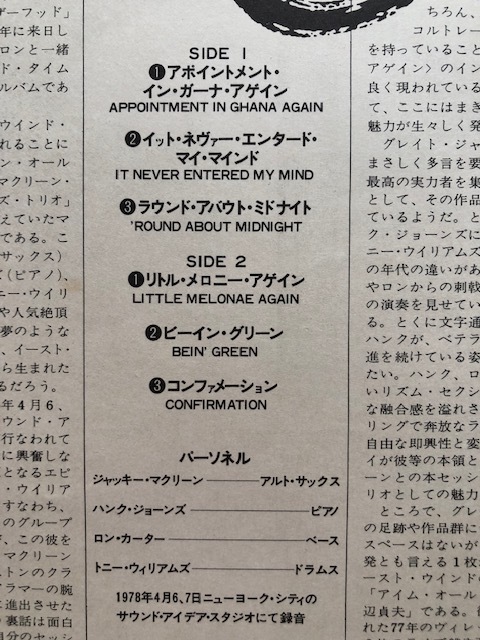 ザーフッド」
年に来日し
ロンと一緒
ド・タイム
ルバムであ
ウインド・
れることに
ン・オール
マクリーン・
ズ・トリオ」
えていたマ
である。こ
サックス)
ズ(ピアノ)、
ニー・ウイリ
や人気絶頂
夢のような
、イースト・
ら生まれた
るだろう。
年4月6、
ウンド・ア
行なわれて
に興奮しな
となるエピ
・ウイリア
すなわち、
のグループ
が、この彼を
マクリーン
ストンのクラ
ドラマーの腕
に進出させた
裏話は面白
自分のセッシ
SIDE 1
❶アポイントメント・
イン・ガーナ・アゲイン
APPOINTMENT IN GHANA AGAIN
❷イット・ネヴァー・エンタード・
マイ・マインド
IT NEVER ENTERED MY MIND
❸ラウンド・アバウト・ミドナイト
'ROUND ABOUT MIDNIGHT
SIDE 2
❶リトル・メロニー・アゲイン
LITTLE MELONAE AGAIN
❷ビーイン・グリーン
BEIN' GREEN
❸コンファメーション
CONFIRMATION
パーソネル
ジャッキー・マクリーン――アルト・サックス
ハンク・ジョーンズ――ピアノ
ロン・カーター――ベース
トニー・ウィリアムズ――ドラムス
1978年4月6、7日ニューヨーク・シティの
サウンド・アイデア・スタジオにて録音
ちろん、
コルトレー
を持っていること
アゲイン〉のイン
良く現われている
て、ここにはまき
魅力が生々しく発
グレイト・ジャ
まさしく多言を要
最高の実力者を集
として、その作品
ているようだ。と
ク・ジョーンズに
ニー・ウイリアムズ
の年代の違いがあ
やロンからの刺戟
の演奏を見せてい
る。とくに文字通
ハンクが、ベテラ
進を続けている姿
たい。ハンク、ロ
いリズム・セクシ
な融合感を溢れさ
リングで奔放なラ
自由な即興性と変
イが彼等の本領と
ーンとの本セッシ
リオとしての魅力
ところで、グレ
の足跡や作品群に
スペースはないが
発とも言える1枚
ースト・ウインドの
「アイム・オール
辺貞夫」である。
れた77年のヴィレ